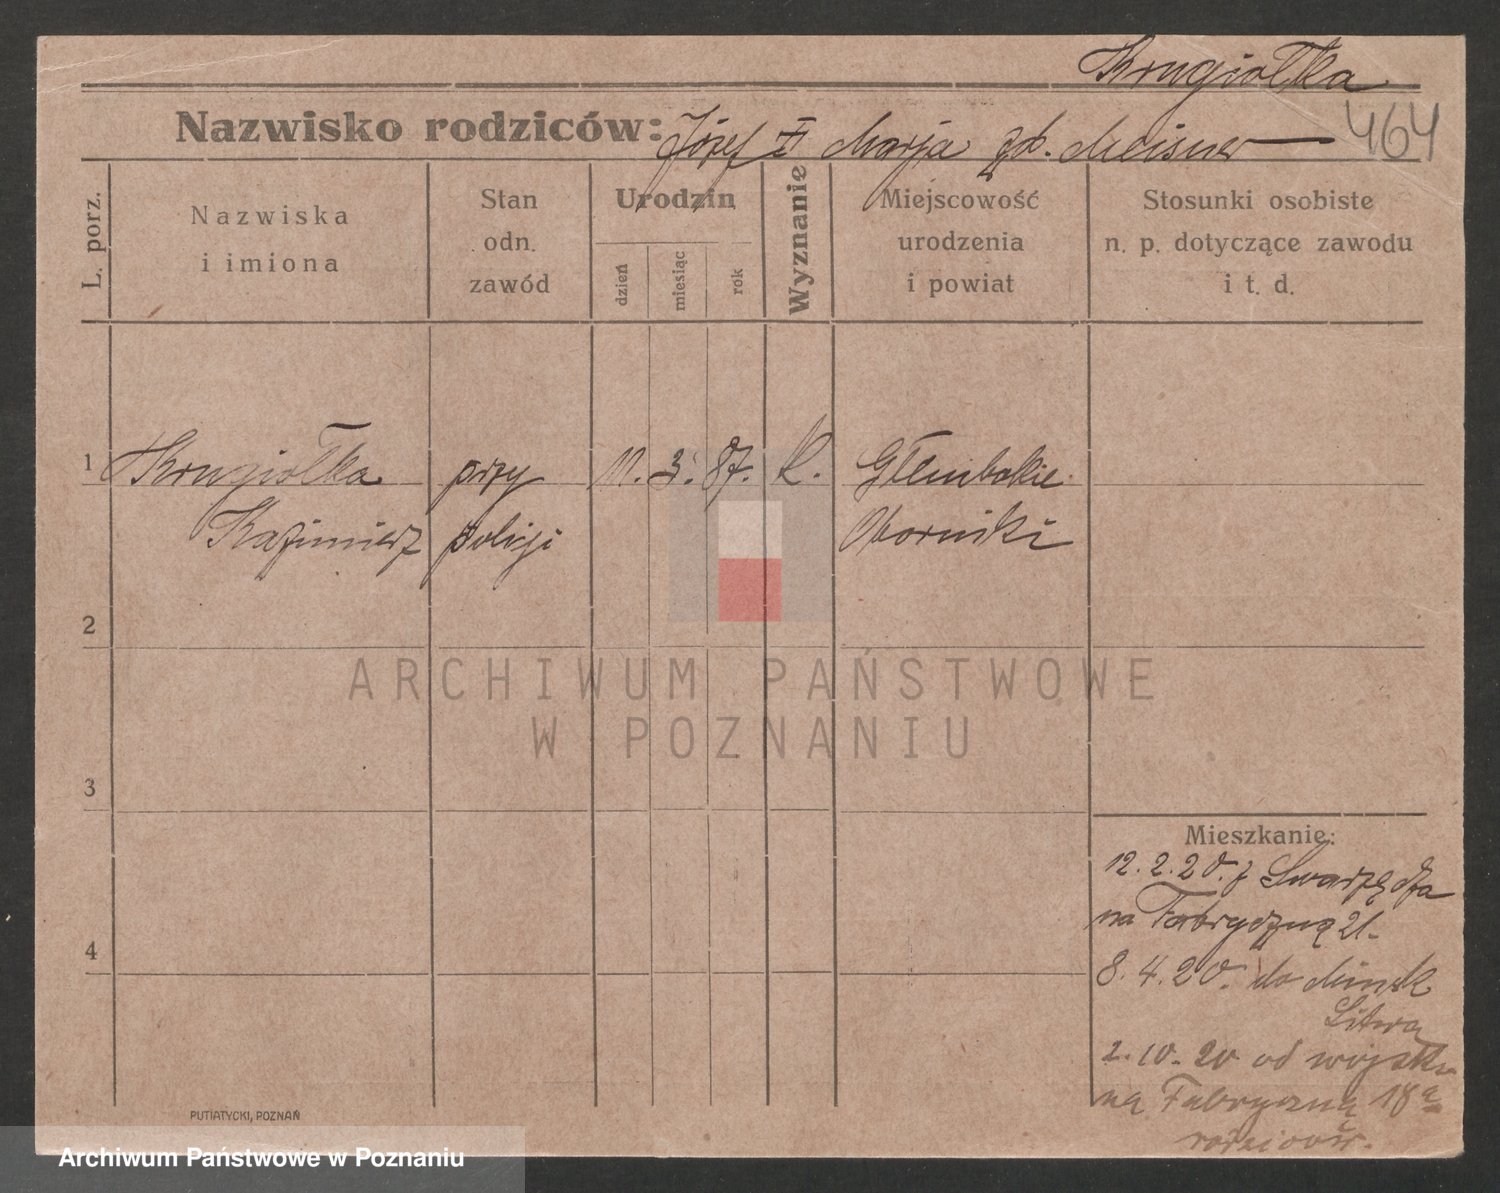 Krugiołka
464
Nazwisko rodziców: Józef Marja gb. Meisner
L. porz.
Nazwiska i imiona
Stan odn. zawód
Urodzin
dzień
miesiąc
rok
Wyznanie
Miejscowość urodzenia i powiat
Stosunki osobiste n. p. dotyczące zawodu i t. d.
1 Krugiołka przy 11. 3. 87. K. Głembokie
Kazimierz policji Oborniki
2
3
4
Mieszkanie:
12.2.20. z Swarzędza
na Fabryczną 21.
8.4.20. do Minsk
Litwa
2.10.20 od wojska
na Fabryczną 18a
rodziców.
PUTIATYCKI, POZNAŃ
ARCHIWUM PAŃSTWOWE
W POZNANIU
Archiwum Państwowe w Poznaniu